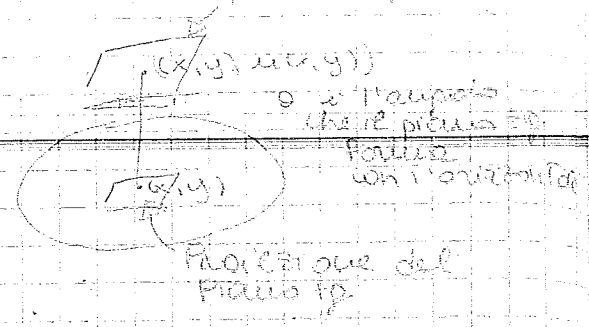 (x,y,u(x,y))
θ è l'angolo
che il piano tg
forma
con l'orizzontale
(x,y)
Proiezione del
piano tg